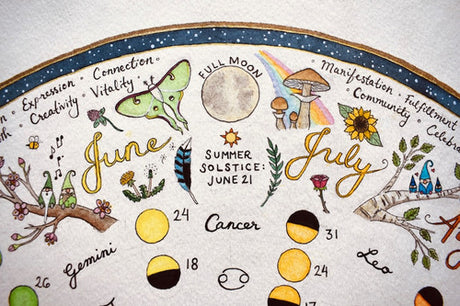 Expression · Connection
Creativity · Vitality
FULL MOON
Manifestation · Fulfillment
Community
June
SUMMER
SOLSTICE:
JUNE 21
July
24
Cancer
31
Gemini
18
24
Leo
26
17